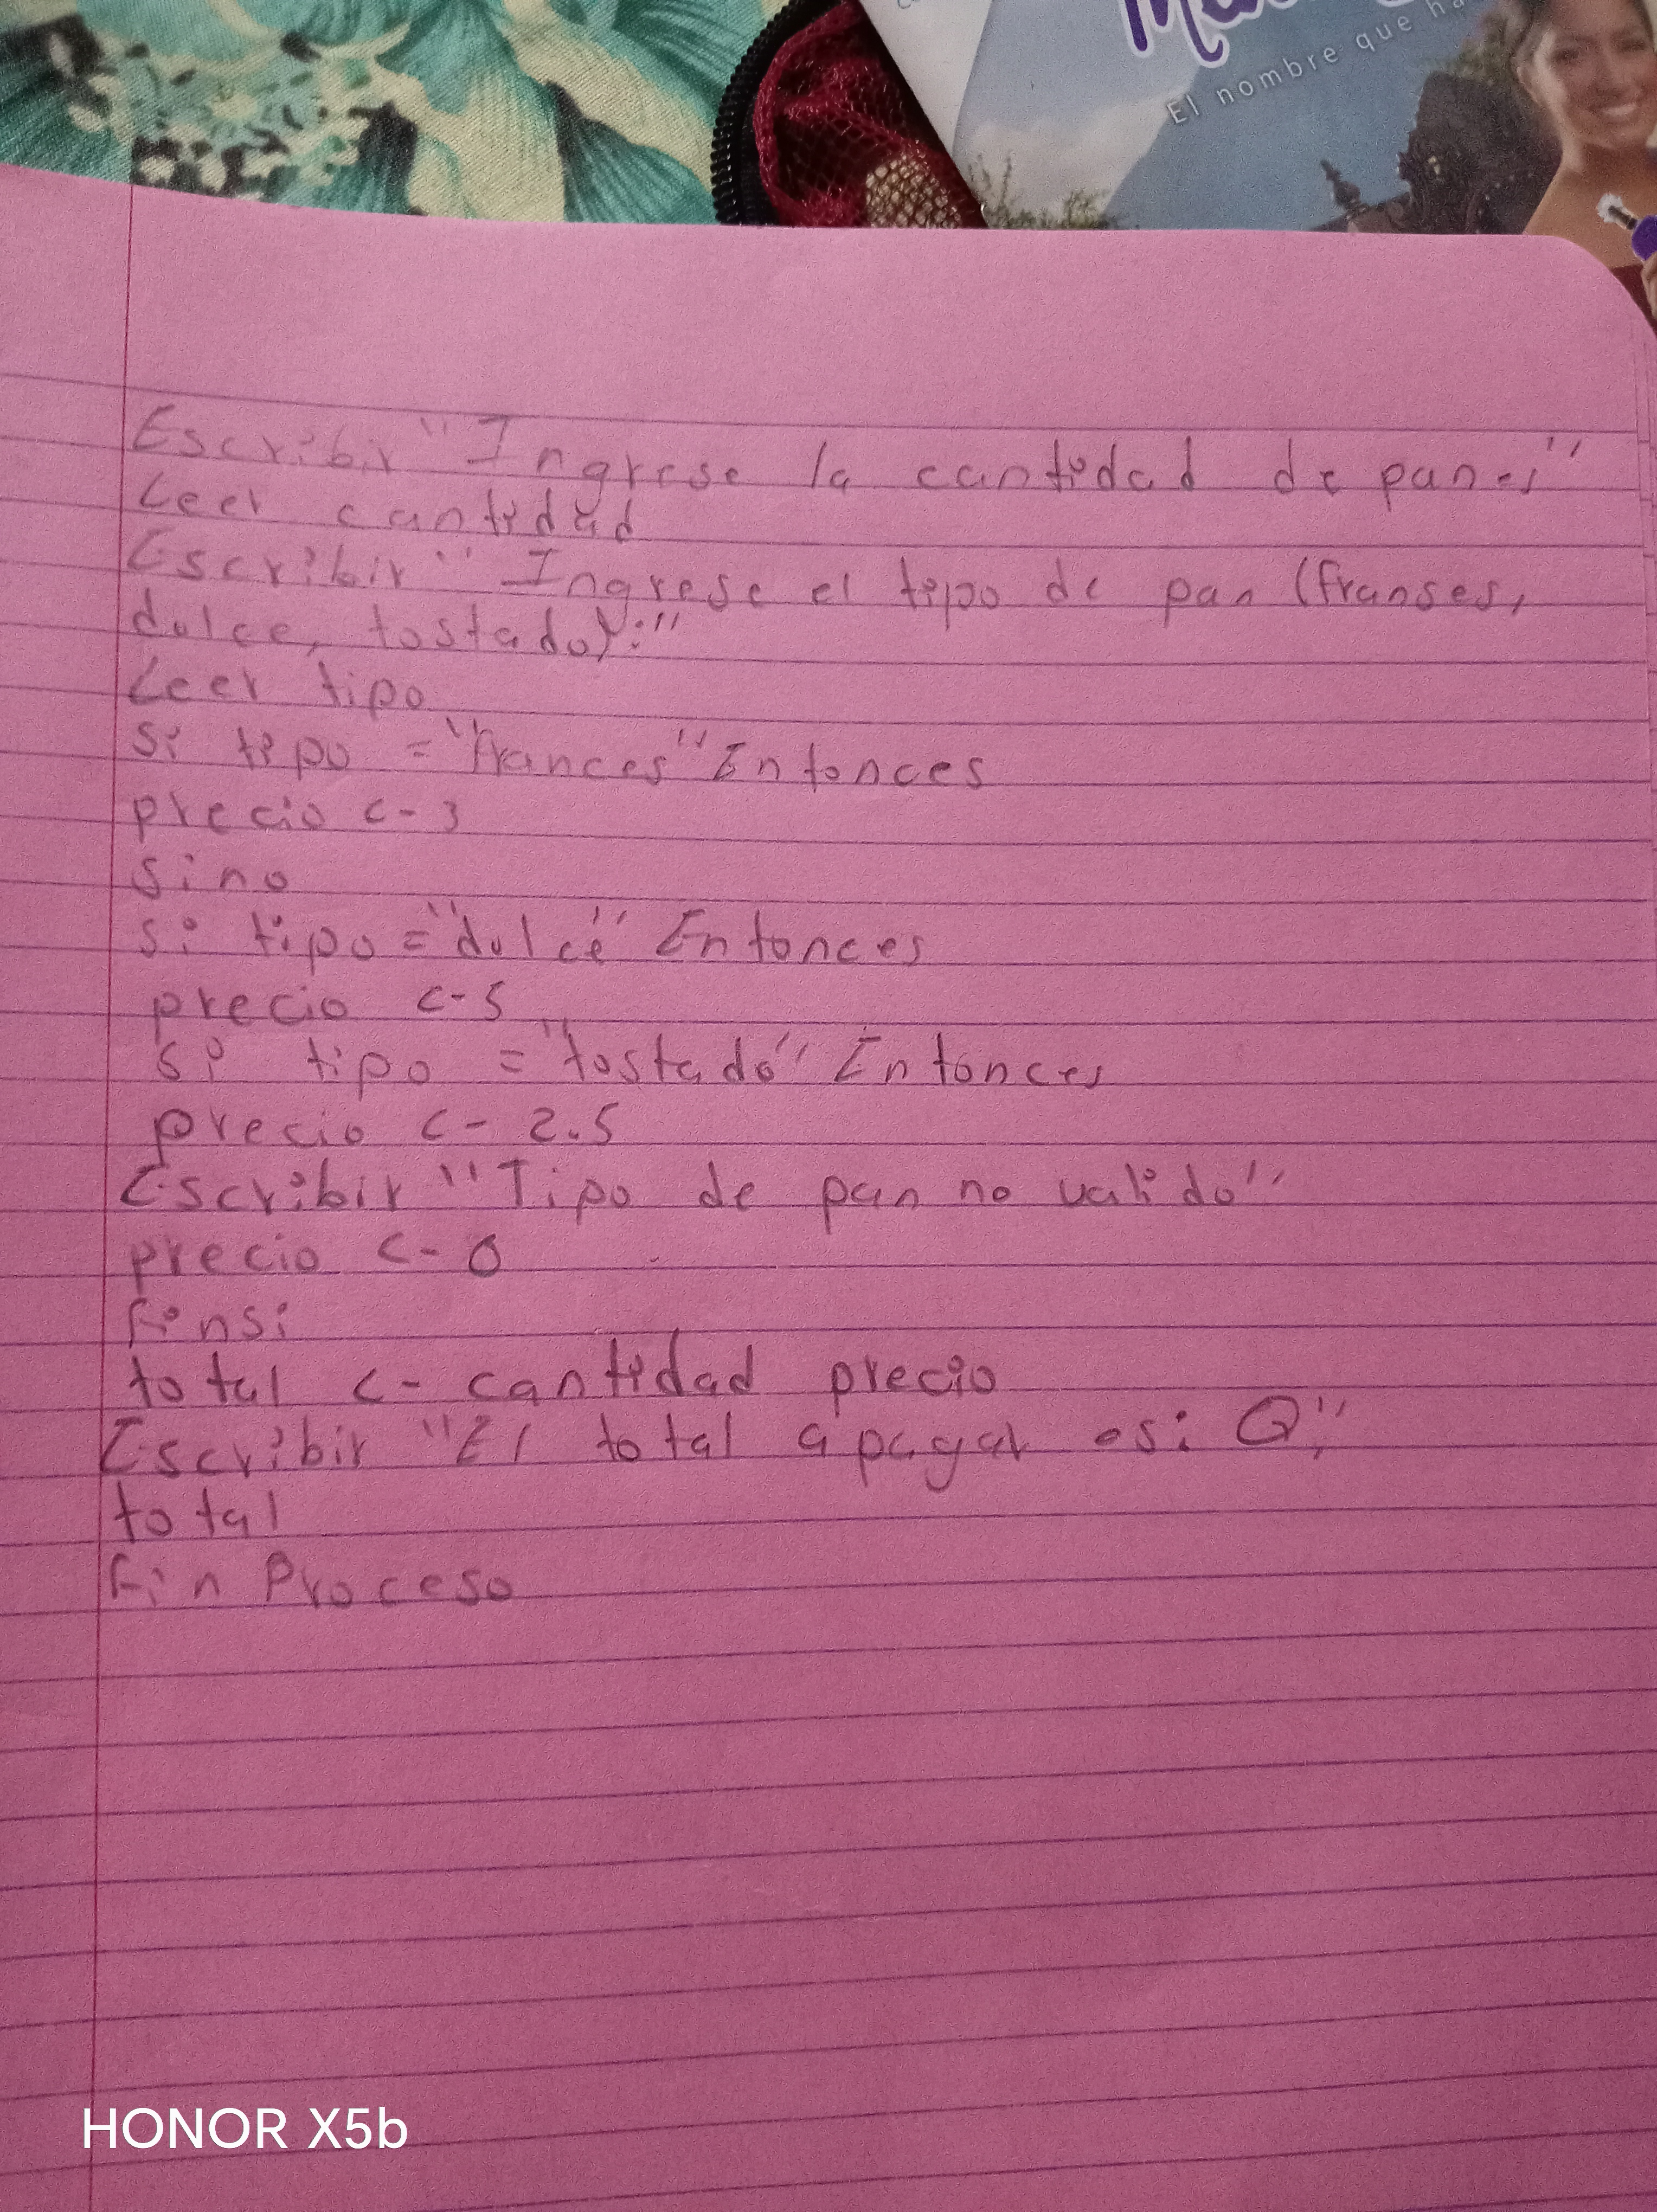 El nombre que
Escribir "Ingrese la cantidad de panes"
Leer cantidad
Escribir "Ingrese el tipo de pan (franses,
dulce, tostado):"
Leer tipo
si tipo = "frances" Entonces
precio <- 3
sino
si tipo = "dulce" Entonces
precio <- 5
si tipo = "tostado" Entonces
precio <- 2.5
Escribir "Tipo de pan no valido"
precio <- 0
finsi
total <- cantidad precio
Escribir "El total a pagar es: Q",
total
Fin Proceso
HONOR X5b